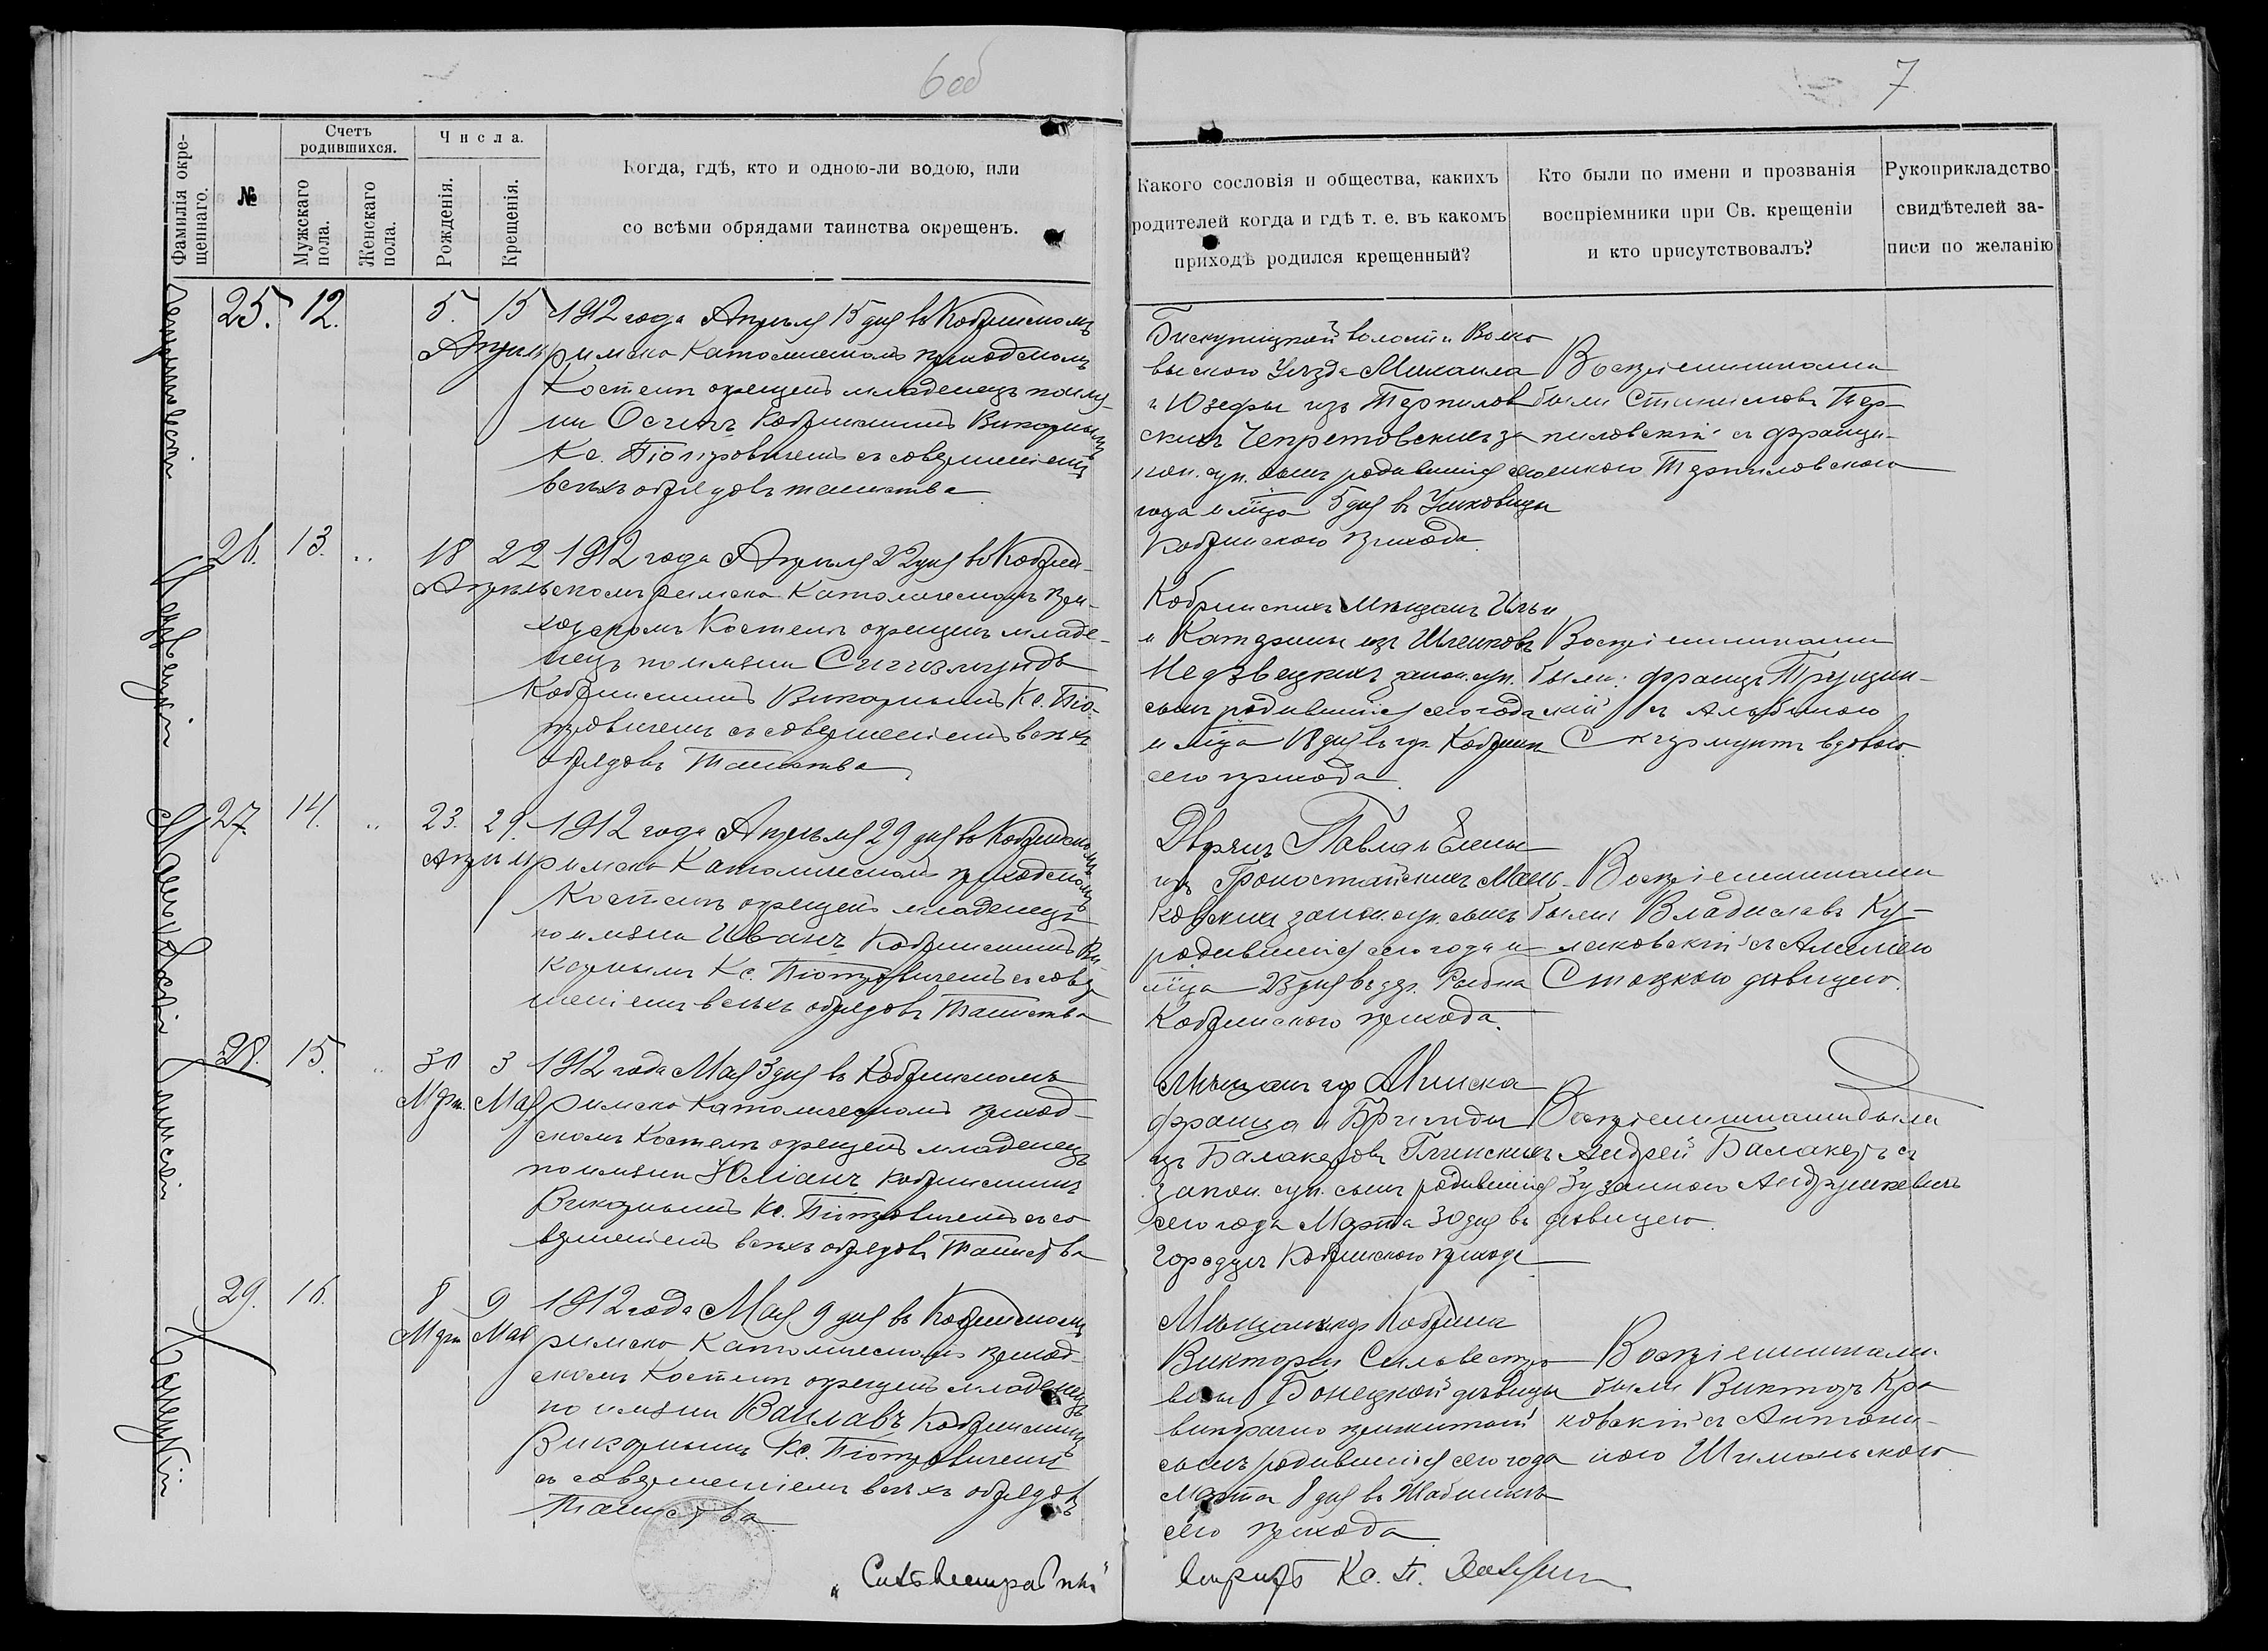 6 об
7
Фамилія окре-
щеннаго.
№
Счетъ
родившихся.
Мужскаго
пола.
Женскаго
пола.
Числа.
Рожденія.
Крещенія.
Когда, гдѣ, кто и одною-ли водою, или
со всѣми обрядами таинства окрещенъ.
Какого сословія и общества, какихъ
родителей когда и гдѣ т. е. въ какомъ
приходѣ родился крещенный?
Кто были по имени и прозванія
воспріемники при Св. крещеніи
и кто присутствовалъ?
Рукоприкладство
свидѣтелей за-
писи по желанію
25. 12. 5. 15
Апрѣль
1912 года Апрѣля 15 дня въ Кобринскомъ
римско Католическомъ приходскомъ
Костелѣ окрещенъ младенецъ по име-
ни Осипъ Кобринскимъ Викарнымъ
Кс. Піотровичемъ съ совершеніемъ
всѣхъ обрядовъ таинства
Бискупицкой волости Волко
выскаго Уѣзда Михаила
и Юзефы изъ Терпилов
скихъ Чепретовскихъ за
кон. суп. сынъ родившійся сего
года и мца 5 дня въ
Кобринскаго прихода.
Воспріемниками
были Станиславъ Тер-
пиловскій съ Франци-
Терпиловскою
26. 13. .. 18 22
Апрѣль
1912 года Апрѣля 22 дня въ Кобрин-
скомъ римско Католическомъ при-
ходскомъ Костелѣ окрещенъ младе-
нецъ по имени Сигизмундъ
Кобринскимъ Викарнымъ Кс. Піо-
тровичемъ съ совершеніемъ всѣхъ
обрядовъ Таинства
Кобринскихъ Мѣщанъ Ильи
и Катарины изъ
Недзвецкихъ закон. суп.
сынъ родившійся сего года
и мца 18 дня въ гор. Кобринѣ
сего прихода.
Воспріемниками
были: Францъ
скій съ Альбиною
вдовою.
27. 14. .. 23. 29.
Апрѣль
1912 года Апрѣля 29 дня въ Кобринскомъ
римско Католическомъ приходскомъ
Костелѣ окрещенъ младенецъ
по имени Иванъ Кобринскимъ Ви-
карнымъ Кс. Піотровичемъ съ совер
шеніемъ всѣхъ обрядовъ Таинства
Дворянъ Павла и Елены
изъ Гроностайскихъ Мань-
ковскихъ закон. суп. сынъ
родившійся сего года и
мца 23 дня въ дер. Рыбна
Кобринскаго прихода.
Воспріемниками
были Владиславъ Ку-
лаковскій съ
Стоцкою дѣвицею.
28. 15. .. 30 3
Март. Мая
1912 года Мая 3 дня въ Кобринскомъ
римско Католическомъ приход-
скомъ Костелѣ окрещенъ младенецъ
по имени Юліанъ Кобринскимъ
Викарнымъ Кс. Піотровичемъ съ со
вершеніемъ всѣхъ обрядовъ Таинства
Мѣщанъ гор. Минска
Франца и Бригиды
изъ Балакеровъ Глинскихъ
закон. суп. сынъ родившійся
сего года Марта 30 дня въ
Городцѣ Кобринскаго прихода
Воспріемниками были
Андрей Балакеръ съ
Зузанною Андрушкевичъ
дѣвицею.
29. 16. 8 9
Март. Мая
1912 года Мая 9 дня въ Кобринскомъ
римско Католическомъ приход-
скомъ Костелѣ окрещенъ младенецъ
по имени Вацлавъ Кобринскимъ
Викарнымъ Кс. Піотровичемъ
съ совершеніемъ всѣхъ обрядовъ
Таинства
Мѣщанки гор. Кобрина
Викторіи Сильвестро
вны Бонецкой дѣвицы
внѣбрачно прижитый
сынъ родившійся сего года
Марта 8 дня въ Жабинкѣ
сего прихода.
Воспріемниками
были Викторъ Кра
ковскій съ Антони-
ною Шиманьскою
Недзвецкій
Маньковскій
Глинскій
Бонецкій